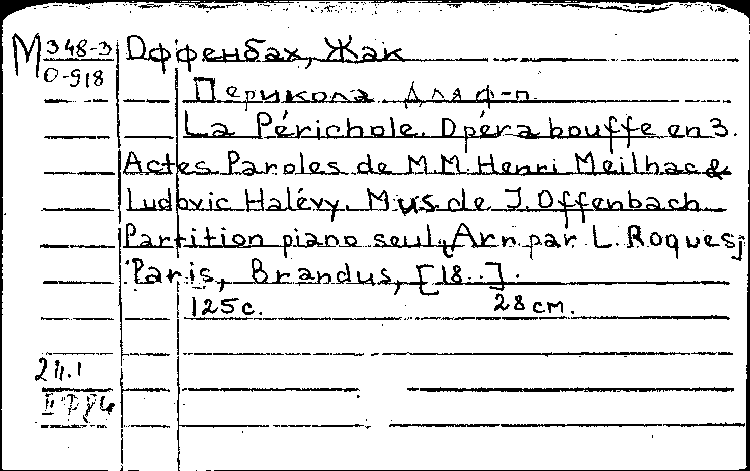 М 348-3
О-918
Оффенбах, Жак
Перикола для ф-п.
La Périchole. Opéra bouffe en 3.
Actes Paroles de M.M. Henri Meilhac &
Ludovic Halévy. Mus. de J. Offenbach
Partition piano seul, Arr. par L. Roques;
Paris, Brandus, [18..].
125 с. 28 см.
24.1